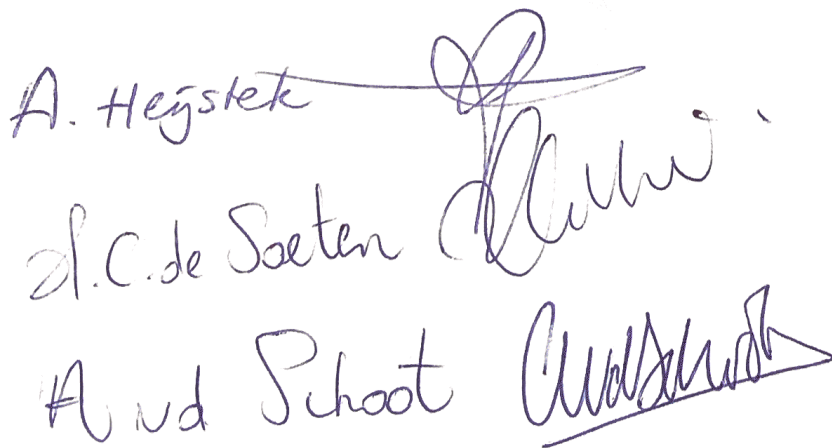 A. Heijstek
C. de Soeten
A vd Schoot